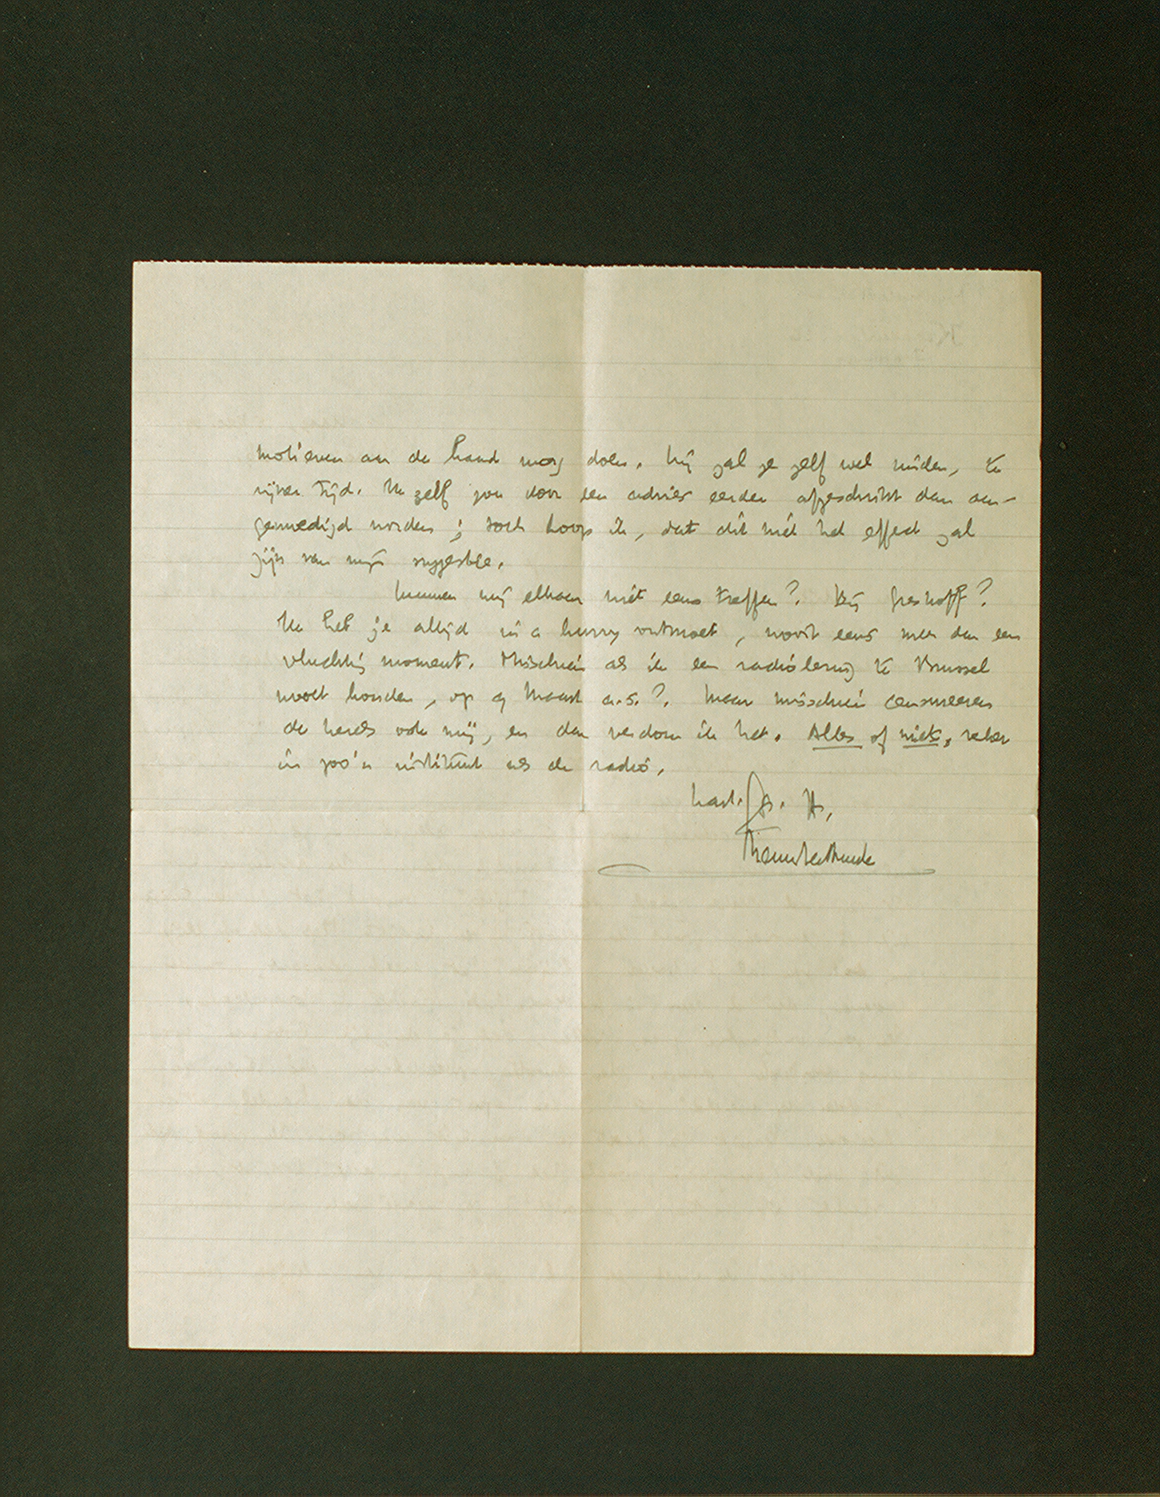 motieven aan de hand mag doen. Hij zal je zelf wel vinden, te
zijner tijd. Ik zelf zou door een advies eerder afgeschrikt dan aan-
gemoedigd worden; toch hoop ik, dat dit niet het effect zal
zijn van mijn suggestie.
Kunnen wij elkaar niet eens treffen? Bij Greshoff?
Ik heb je altijd in a hurry ontmoet, nooit eens meer dan een
vluchtig moment. Misschien als ik een radiolezing te Brussel
moet houden, op 9 Maart a.s.? Maar misschien censureeren
de heeren ook mij, en dan verdom ik het. Alles of niets, zeker
in zoo'n instituut als de radio.
Hart. gr. tt,